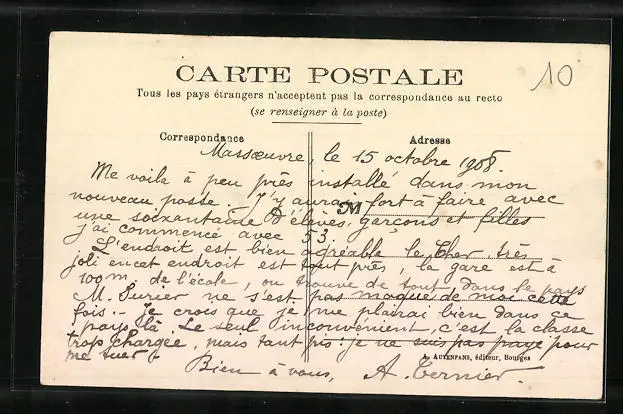 CARTE POSTALE
10
Tous les pays étrangers n'acceptent pas la correspondance au recto
(se renseigner à la poste)
Correspondance
Adresse
Massœuvre, le 15 octobre 1908.
Me voila à peu près installé dans mon
nouveau poste. J'y aurai fort à faire avec
M
une soixantaine d'élèves, garçons et filles
j'ai commencé avec 53.
L'endroit est bien agréable le Cher, très
joli en cet endroit est tout près, la gare est à
100 m. de l'école, on trouve de tout dans le pays
M. Surier ne s'est pas moqué de moi cette
fois.. je crois que je me plairai bien dans ce
pays là. Le seul inconvénient, c'est la classe
trop chargée, mais tant pis! je ne suis pas payé pour
me tuer!
A. AUXENFANS, éditeur, Bourges
Bien à vous, A. Ternier.